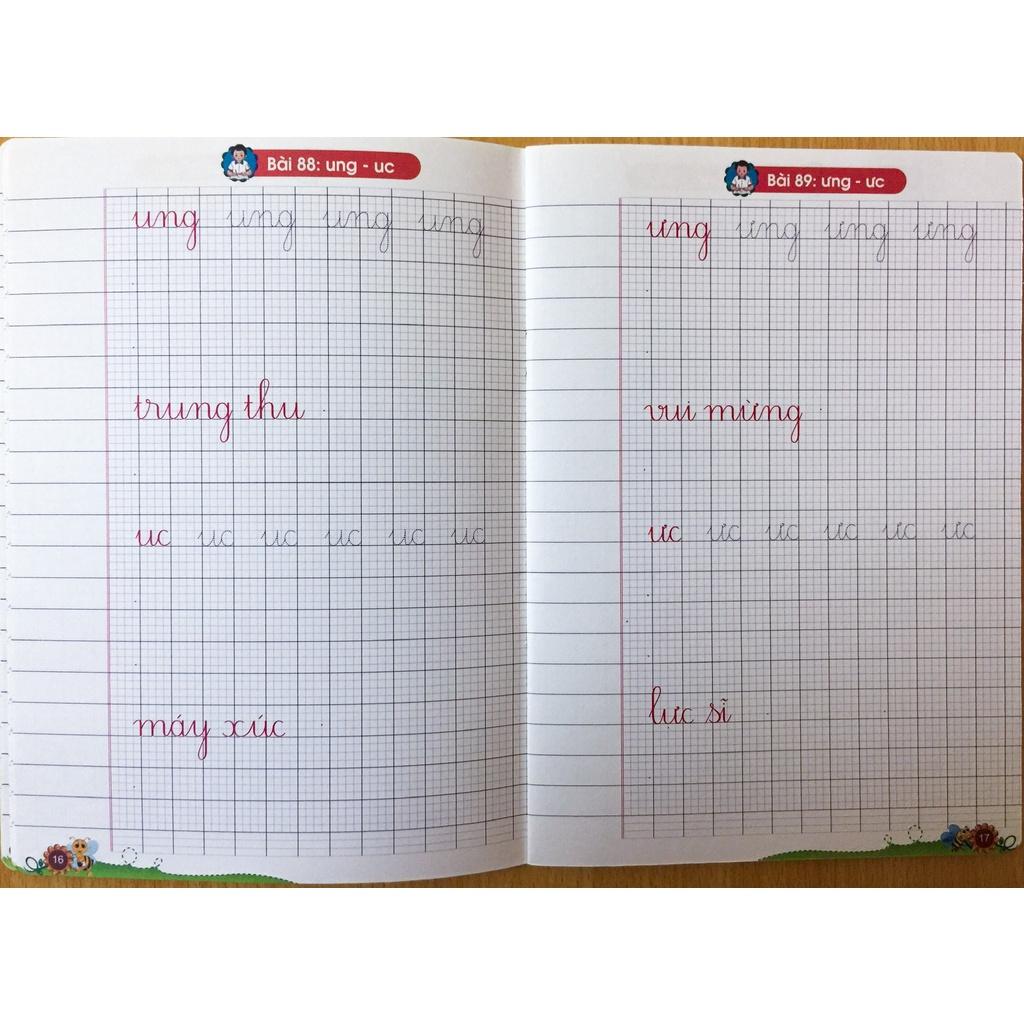 Bài 88: ung - uc
ung ung ung ung
trung thu
uc uc uc uc uc uc
máy xúc
16
Bài 89: ưng - ưc
ưng ưng ưng ưng
vui mừng
ưc ưc ưc ưc ưc ưc
lực sĩ
17